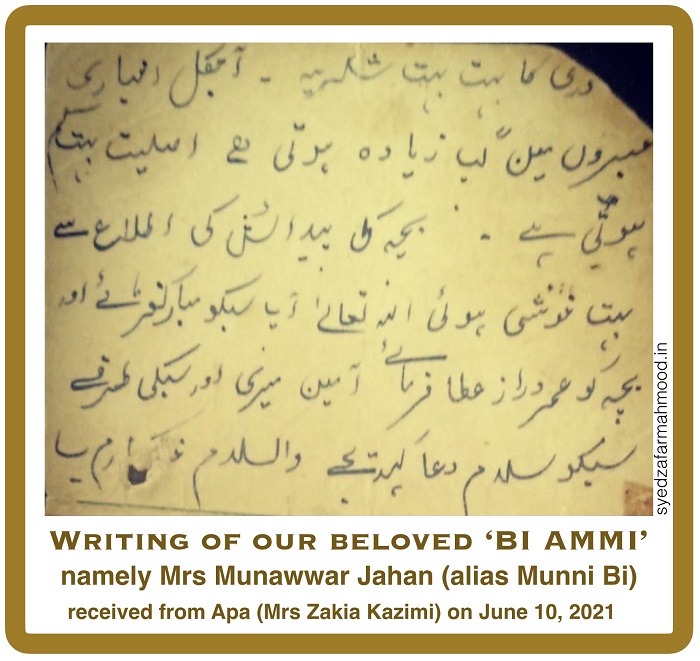 دری کا بہت بہت شکریہ - آجکل اخباری
خبروں میں گپ زیادہ ہوتی ہے اصلیت بہت کم
ہوتی ہے - بچہ کی پیدائش کی اطلاع سے
بہت خوشی ہوئی اللہ تعالیٰ سبکو مبارک اور
بچہ کو عمر دراز عطا فرمائے آمین میری اور سبکی طرف سے
سبکو سلام دعا کہدیجے والسلام
syedzafarmahmood.in
WRITING OF OUR BELOVED ‘BI AMMI’
namely Mrs Munawwar Jahan (alias Munni Bi)
received from Apa (Mrs Zakia Kazimi) on June 10, 2021